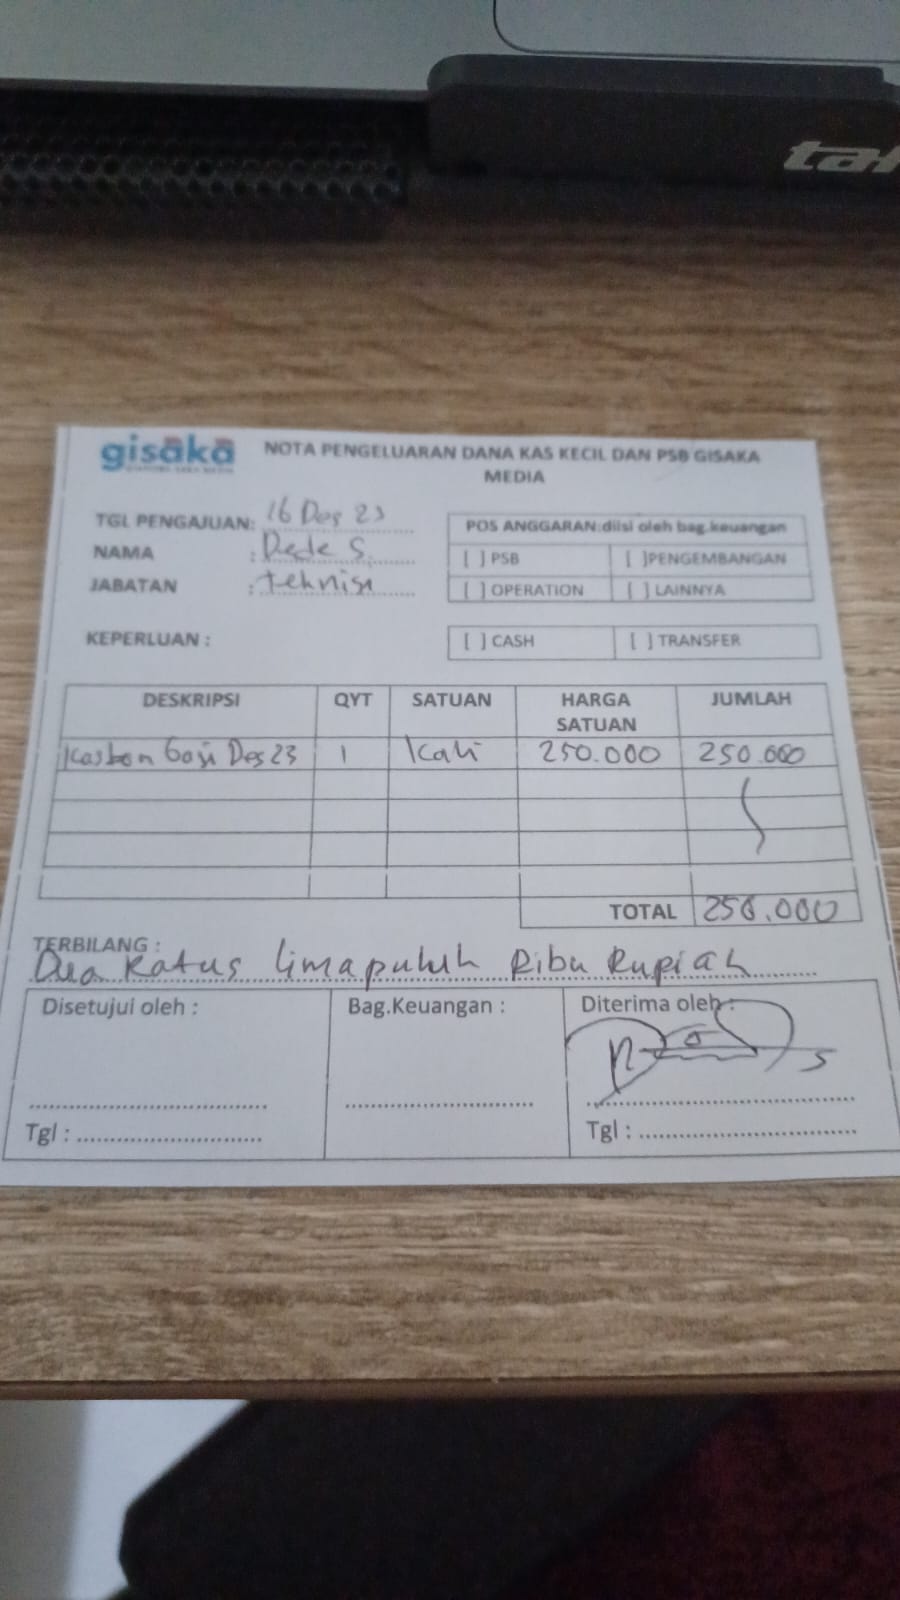 tal
gisaka NOTA PENGELUARAN DANA KAS KECIL DAN PSB GISAKA
MEDIA
TGL PENGAJUAN: 16 Des 23
NAMA : Dede S.
JABATAN : tehnisi
POS ANGGARAN:diisi oleh bag.keuangan
[ ] PSB [ ]PENGEMBANGAN
[ ] OPERATION [ ] LAINNYA
KEPERLUAN : [ ] CASH [ ] TRANSFER
DESKRIPSI QYT SATUAN HARGA SATUAN JUMLAH
Kasbon Gaji Des 23 1 Kali 250.000 250.000
TOTAL 250.000
TERBILANG :
Dua Ratus limapuluh Ribu Rupiah
Disetujui oleh : Bag.Keuangan : Diterima oleh :
Tgl : Tgl :